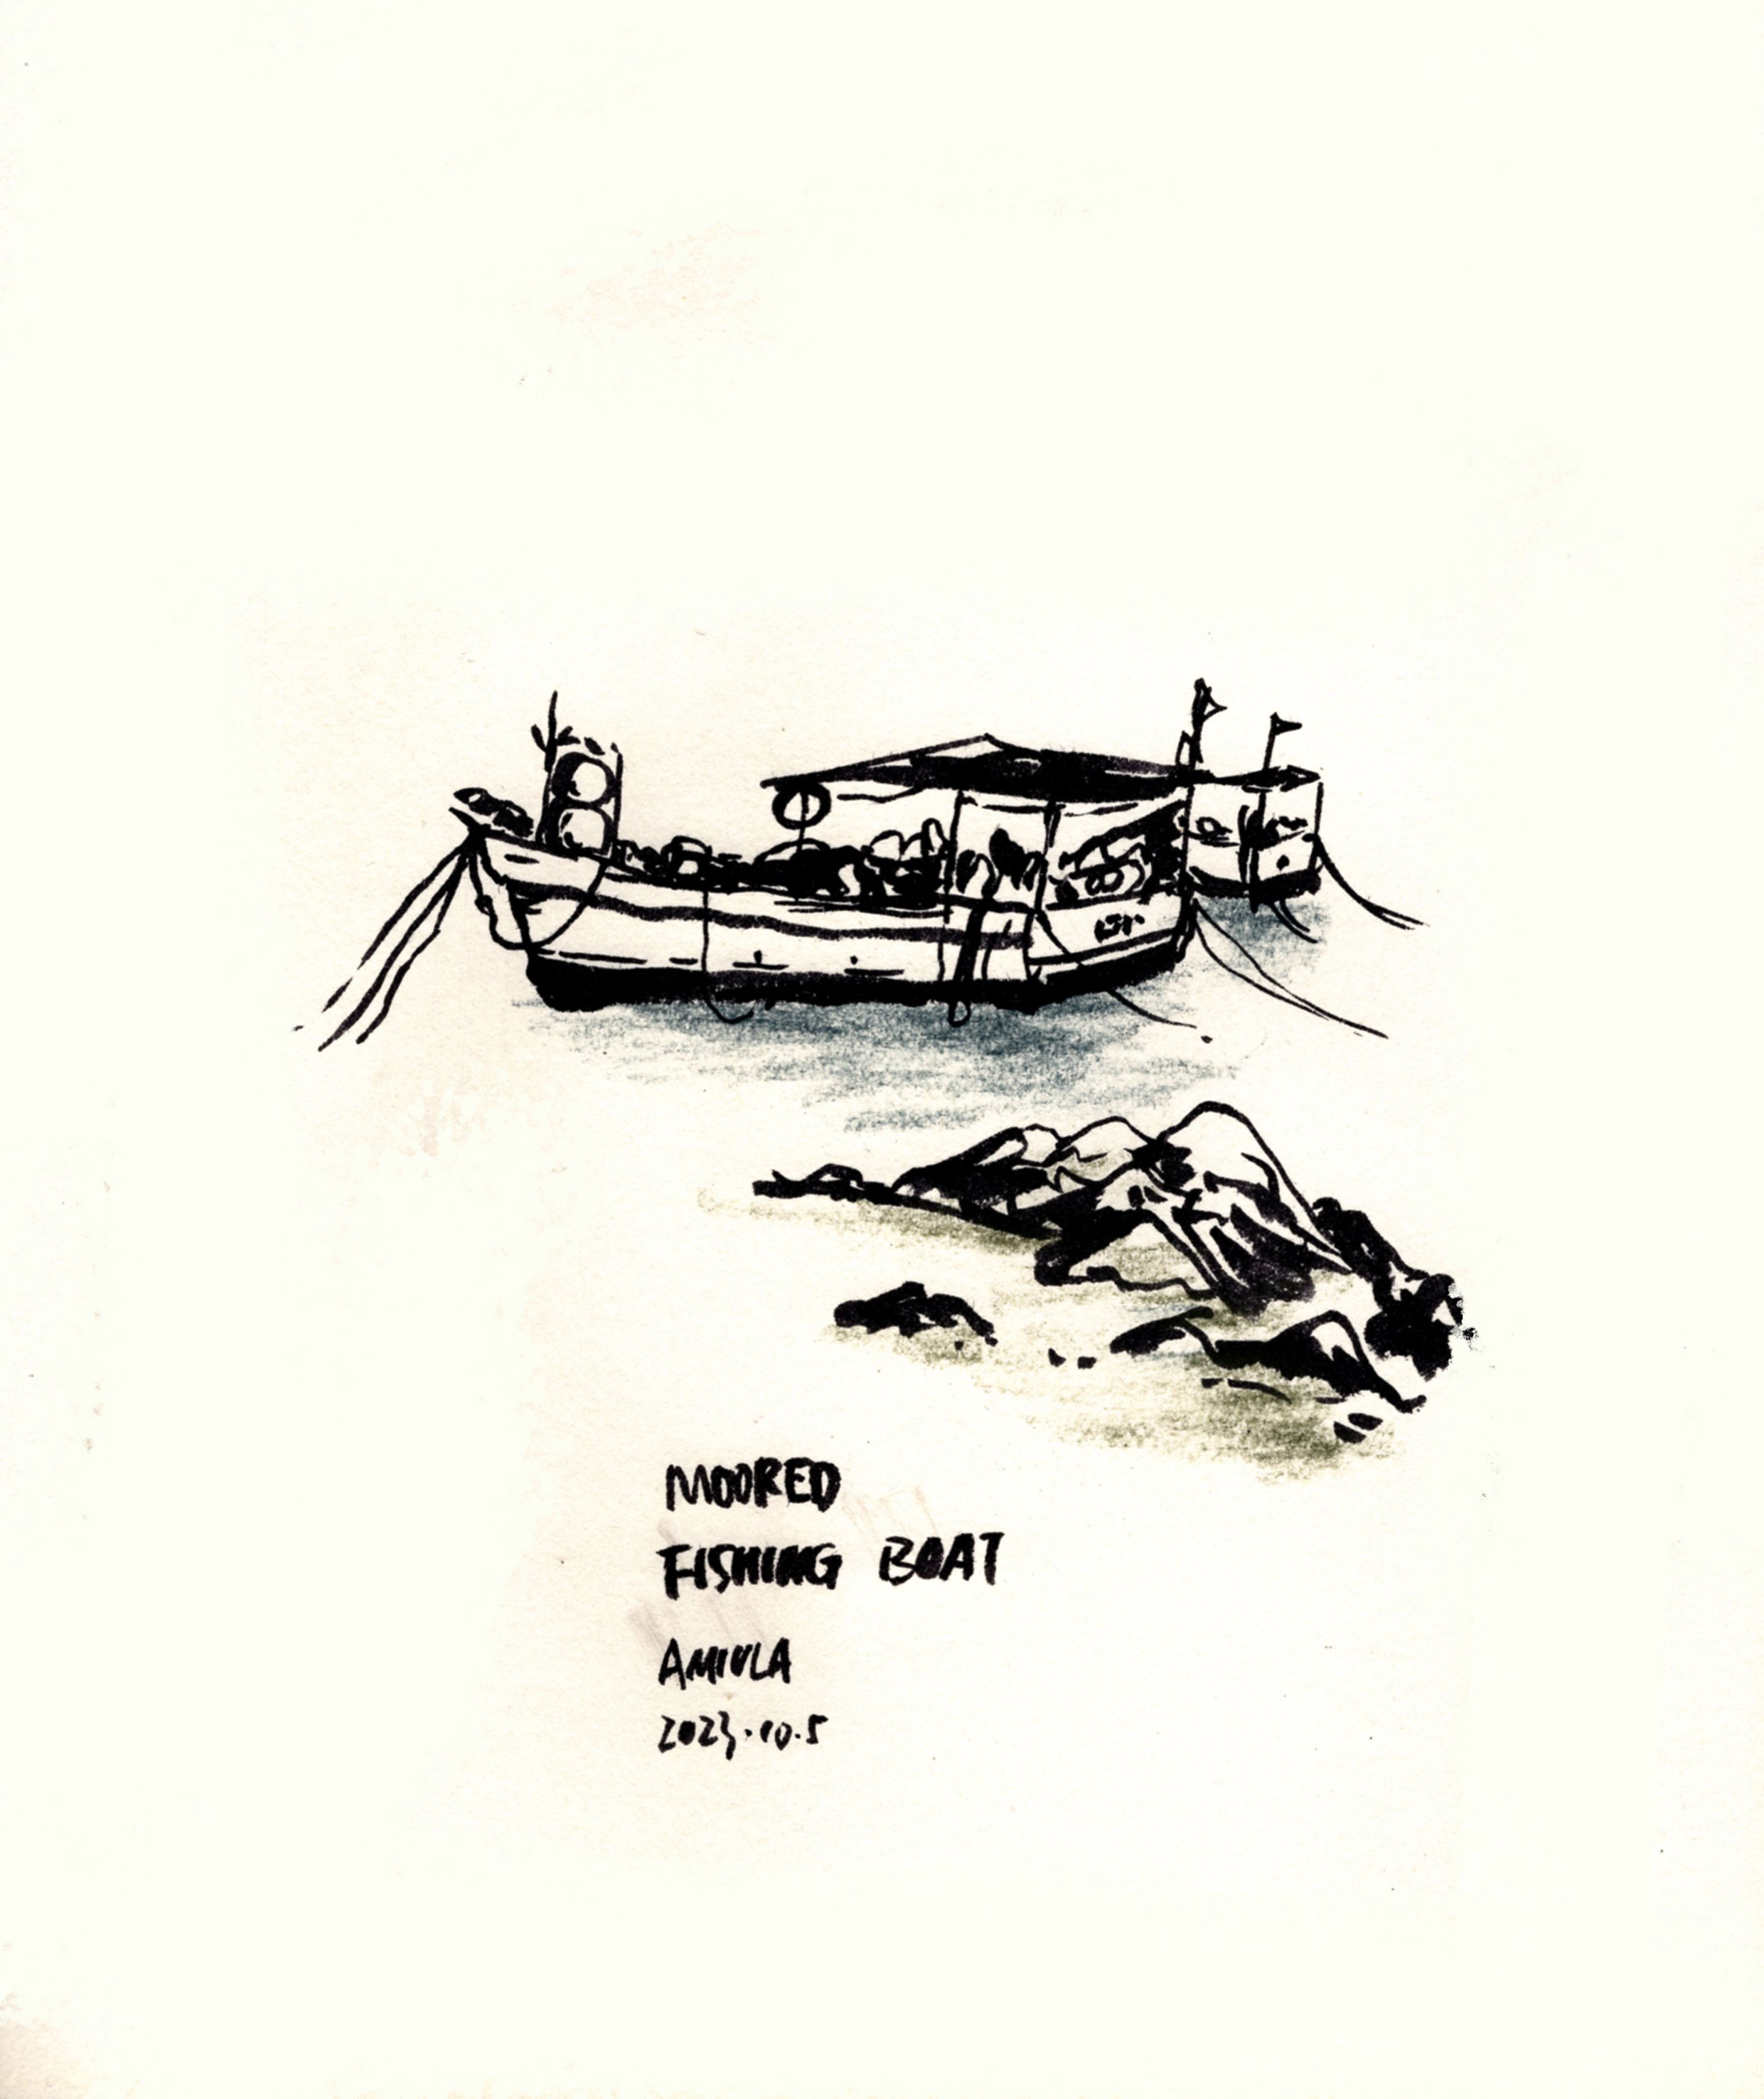 MOORED
FISHING BOAT
AMIULA
2023.10.5